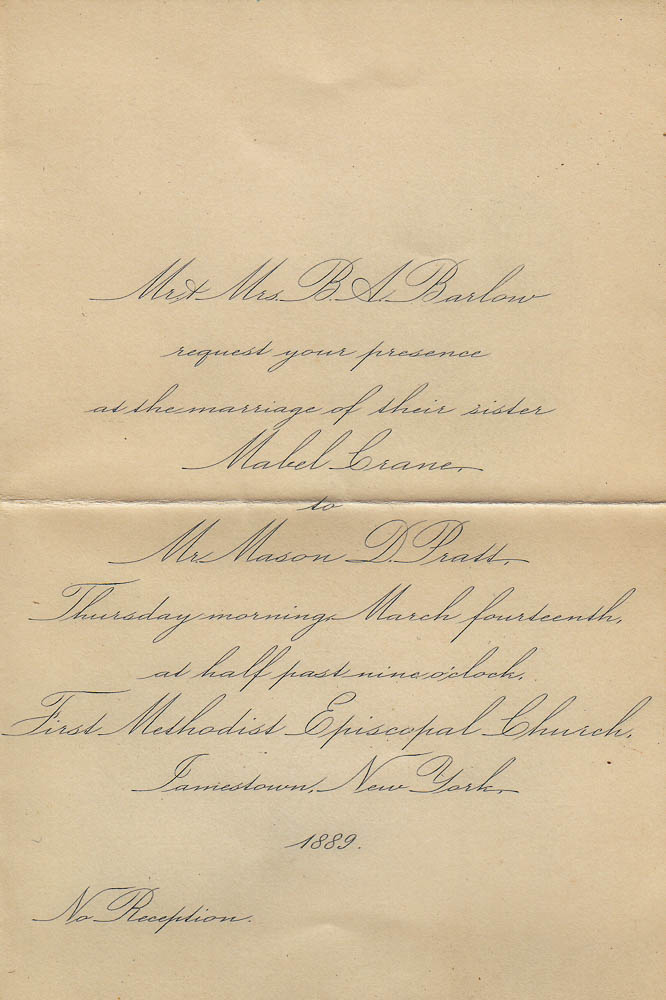 Mr. & Mrs. B. A. Barlow
request your presence
at the marriage of their sister
Mabel Crane,
to
Mr. Mason D. Pratt,
Thursday morning, March fourteenth,
at half past nine o'clock,
First Methodist Episcopal Church,
Jamestown, New York,
1889.
No Reception.